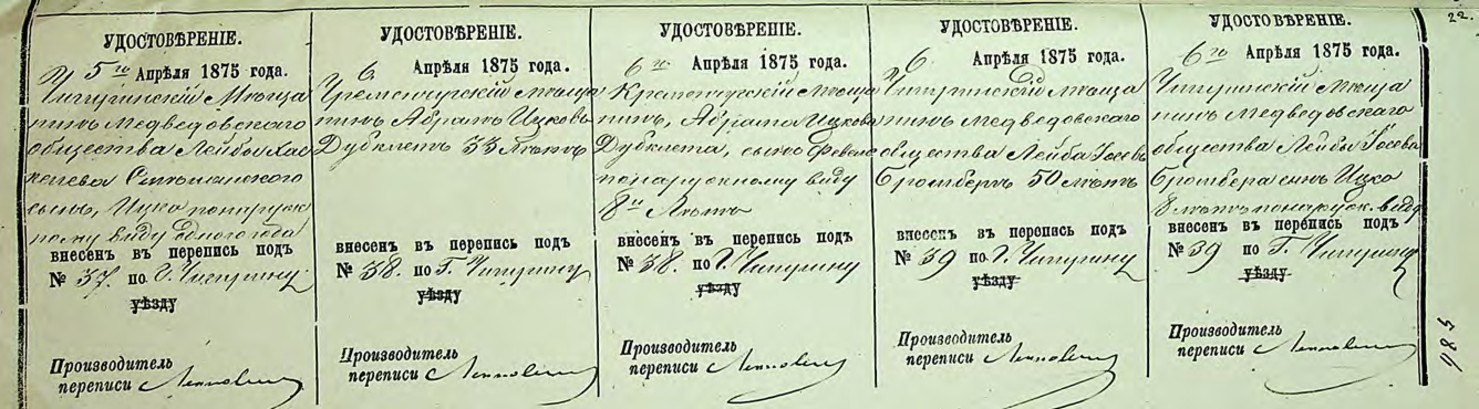 22.
УДОСТОВѢРЕНІЕ.
5го Апрѣля 1875 года.
Чигиринскій Мѣща
нинъ Медведовскаго
общества Лейбы Хас
келева
сынъ, Ицко по наруж
ному виду одного года
внесенъ въ перепись подъ
№ 37. по Г. Чигирину
уѣзду
Производитель
переписи
УДОСТОВѢРЕНІЕ.
6 Апрѣля 1875 года.
Кременчугскій мѣща
нинъ Абрамъ Ицковъ
33 лѣтъ
внесенъ въ перепись подъ
№ 38. по Г. Чигирину
уѣзду
Производитель
переписи
УДОСТОВѢРЕНІЕ.
6го Апрѣля 1875 года.
Кременчугскій мѣща
нинъ, Абрама Ицкова
сынъ
по наружному виду
8и Лѣтъ
внесенъ въ перепись подъ
№ 38. по Г. Чигирину
уѣзду
Производитель
переписи
УДОСТОВѢРЕНІЕ.
6 Апрѣля 1875 года.
Чигиринскій мѣща
нинъ Медведовскаго
общества Лейба Іосевъ
Бромбергъ 50 лѣтъ
внесенъ въ перепись подъ
№ 39 по Г. Чигирину
уѣзду
Производитель
переписи
УДОСТОВѢРЕНІЕ.
6го Апрѣля 1875 года.
Чигиринскій мѣща
нинъ Медведовскаго
общества Лейбы Іосева
Бромберга сынъ Ицко
8 лѣтъ по наруж. виду
внесенъ въ перепись подъ
№ 39 по Г. Чигирину
уѣзду
Производитель
переписи